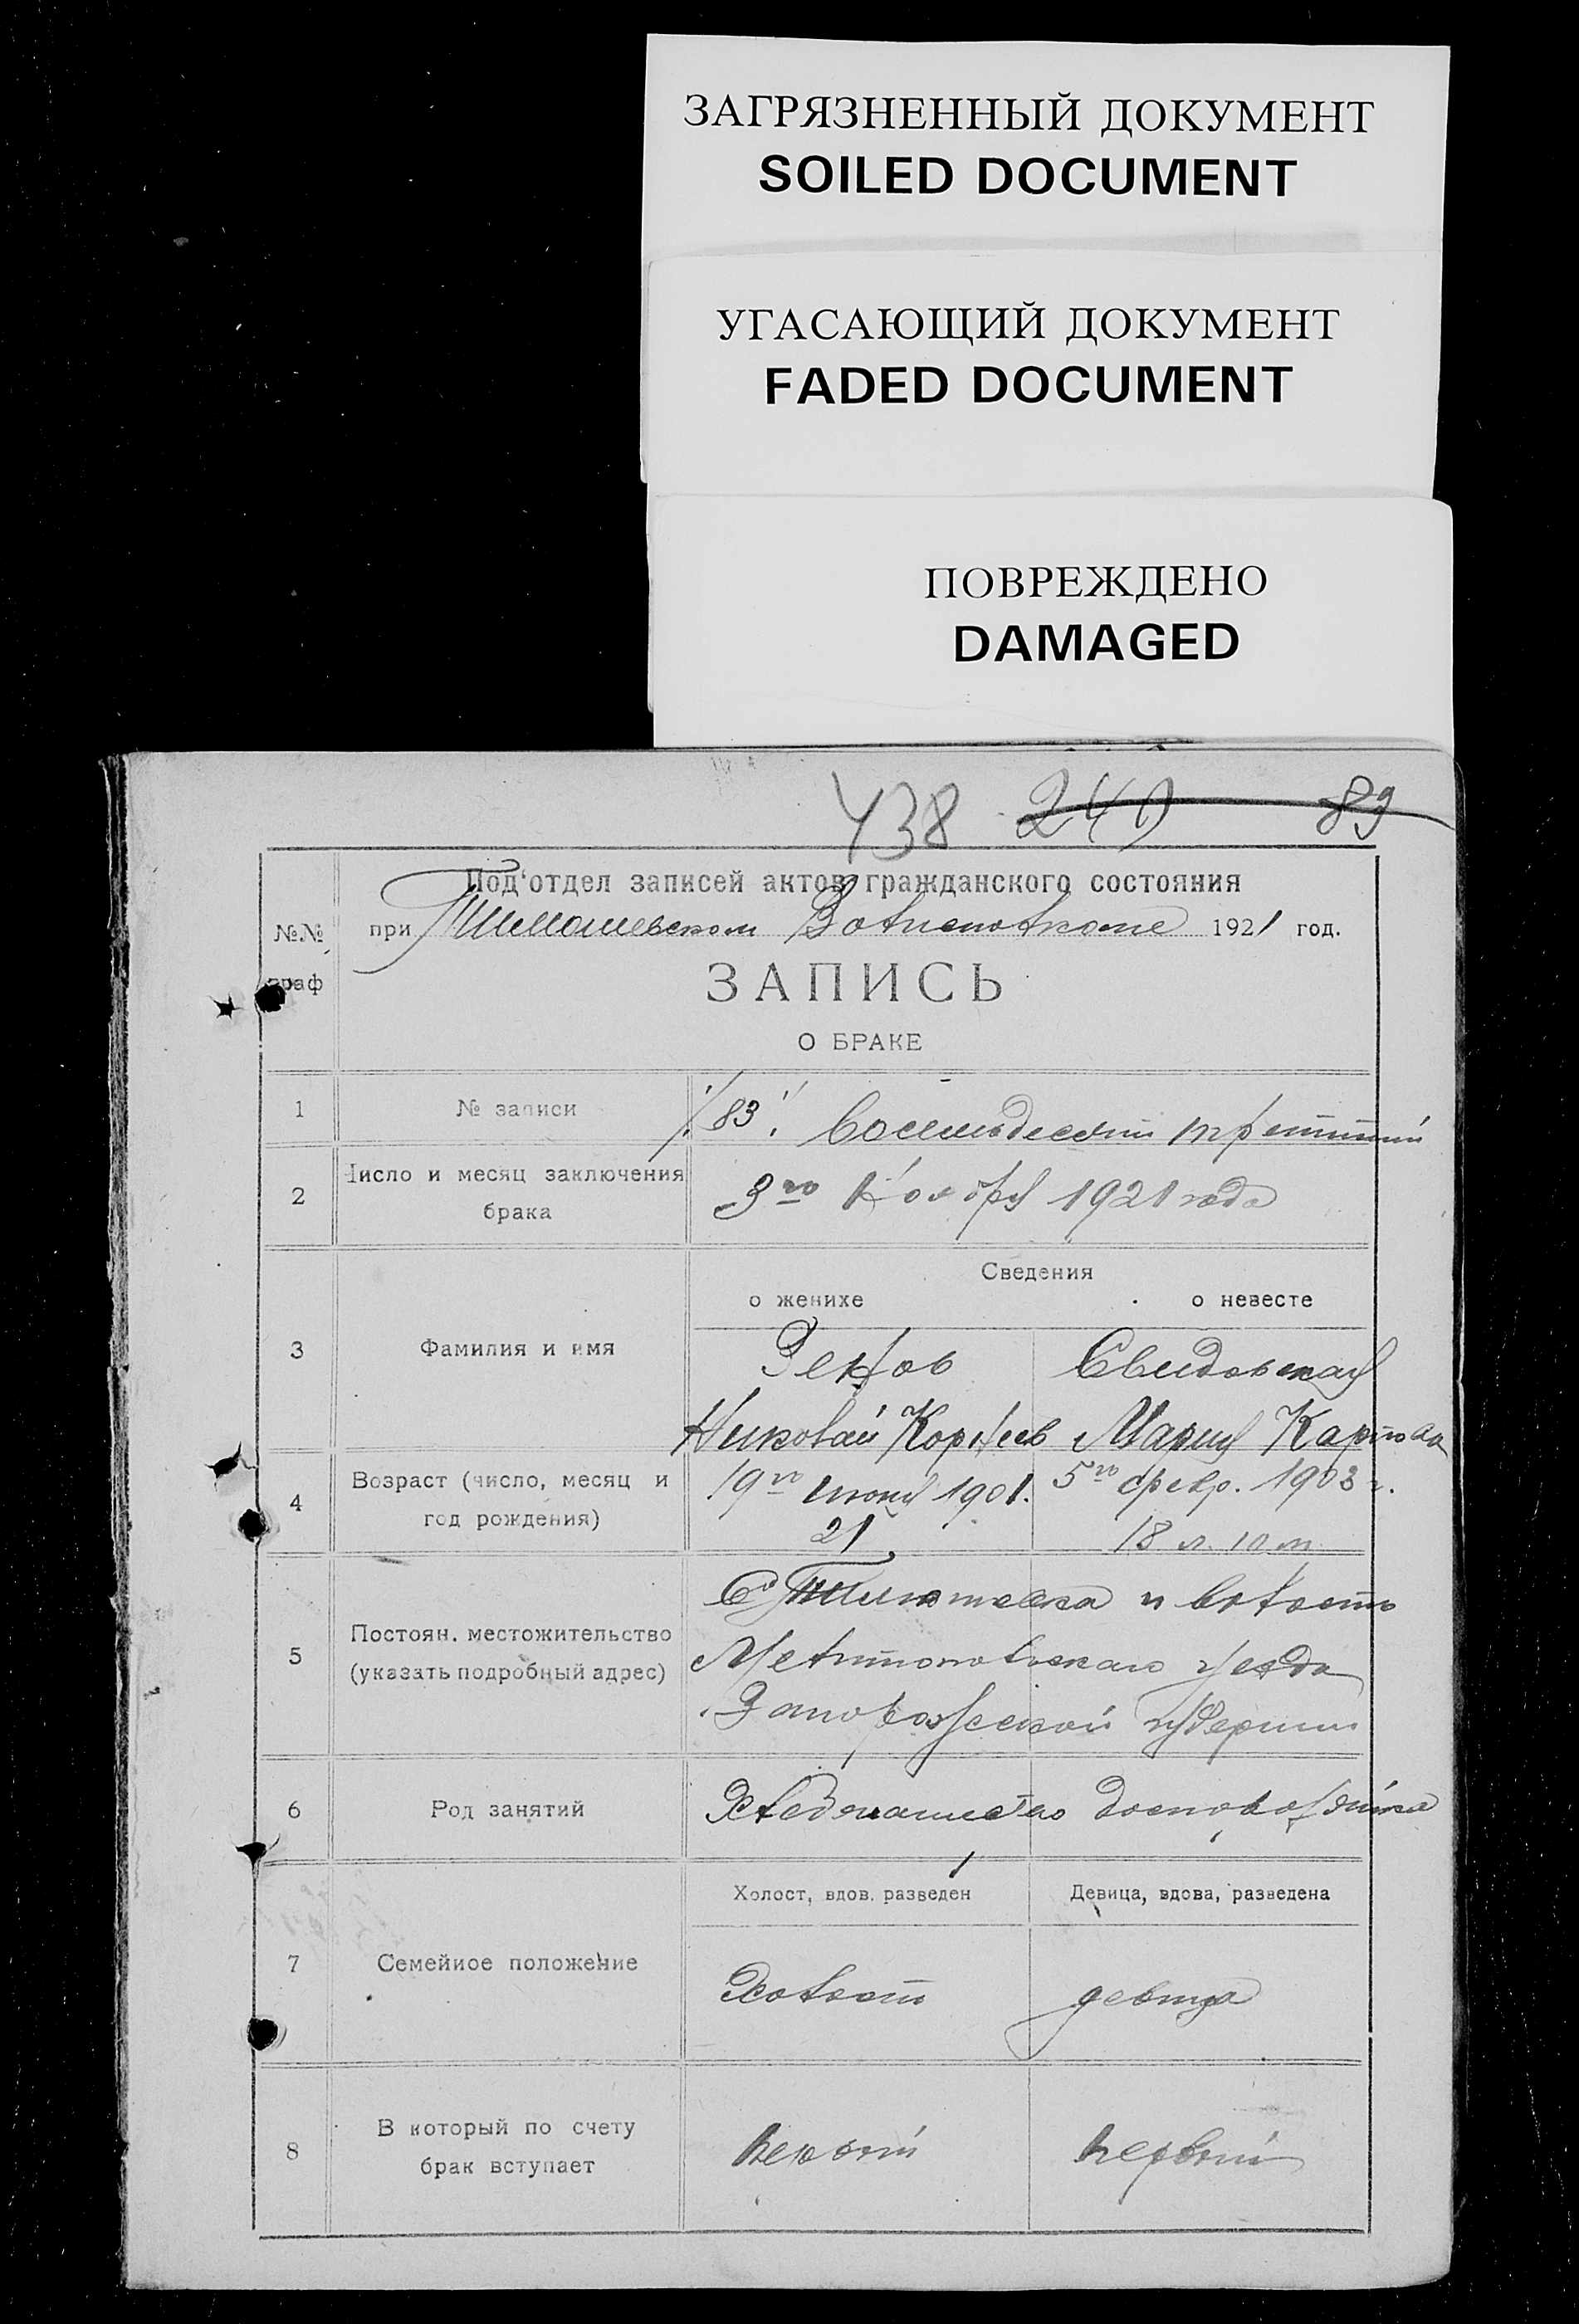 ЗАГРЯЗНЕННЫЙ ДОКУМЕНТ
SOILED DOCUMENT
УГАСАЮЩИЙ ДОКУМЕНТ
FADED DOCUMENT
ПОВРЕЖДЕНО
DAMAGED
438 249 89
Под'отдел записей актов гражданского состояния
№№ граф
при Тимошевском Волисполкоме 1921 год.
ЗАПИСЬ
О БРАКЕ
1 № записи /83/. Восемьдесят третий
2 Число и месяц заключения брака 3го Ноября 1921 года
Сведения
о женихе о невесте
3 Фамилия и имя
Зенов Свидовская
Николай Корнеев Мария Карпова
4 Возраст (число, месяц и год рождения)
19го июня 1901. 5го февр. 1903 г.
21 18 л. 10 м
5 Постоян. местожительство (указать подробный адрес)
С. Тимошевка и волость
Мелитопольскаго уезда
Запорожской губернии
6 Род занятий Хлебопашество домохозяйка
Холост, вдов. разведен Девица, вдова, разведена
7 Семейное положение Холост девица
8 В который по счету брак вступает первый первый